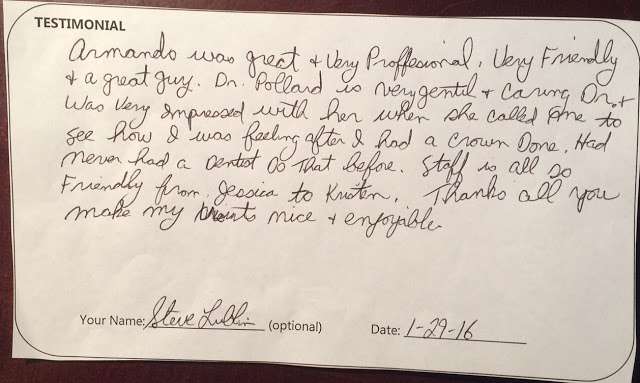 TESTIMONIAL
Armando was great + Very Proffesional, Very Friendly
+ a great guy. Dr. Pollard is very gentil + Caring Dr. +
Was Very Impressed with her when she called me to
see how I was feeling after I had a Crown Done, Had
never had a Dentist Do That before. Staff is all so
Friendly from Jessica to Kristen, Thanks all you
make my visits nice + enjoyible
Your Name: Steve (optional) Date: 1-29-16